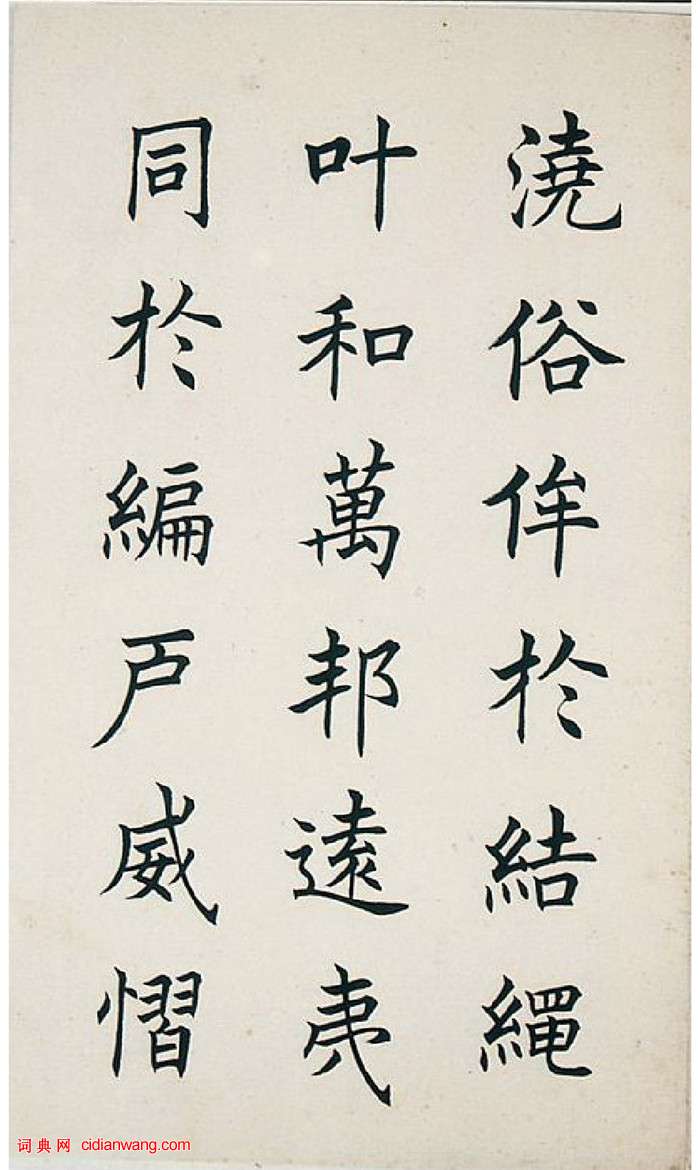 澆俗侔於結繩
叶和萬邦遠夷
同於編戶威慴
词典网 cidianwang.com